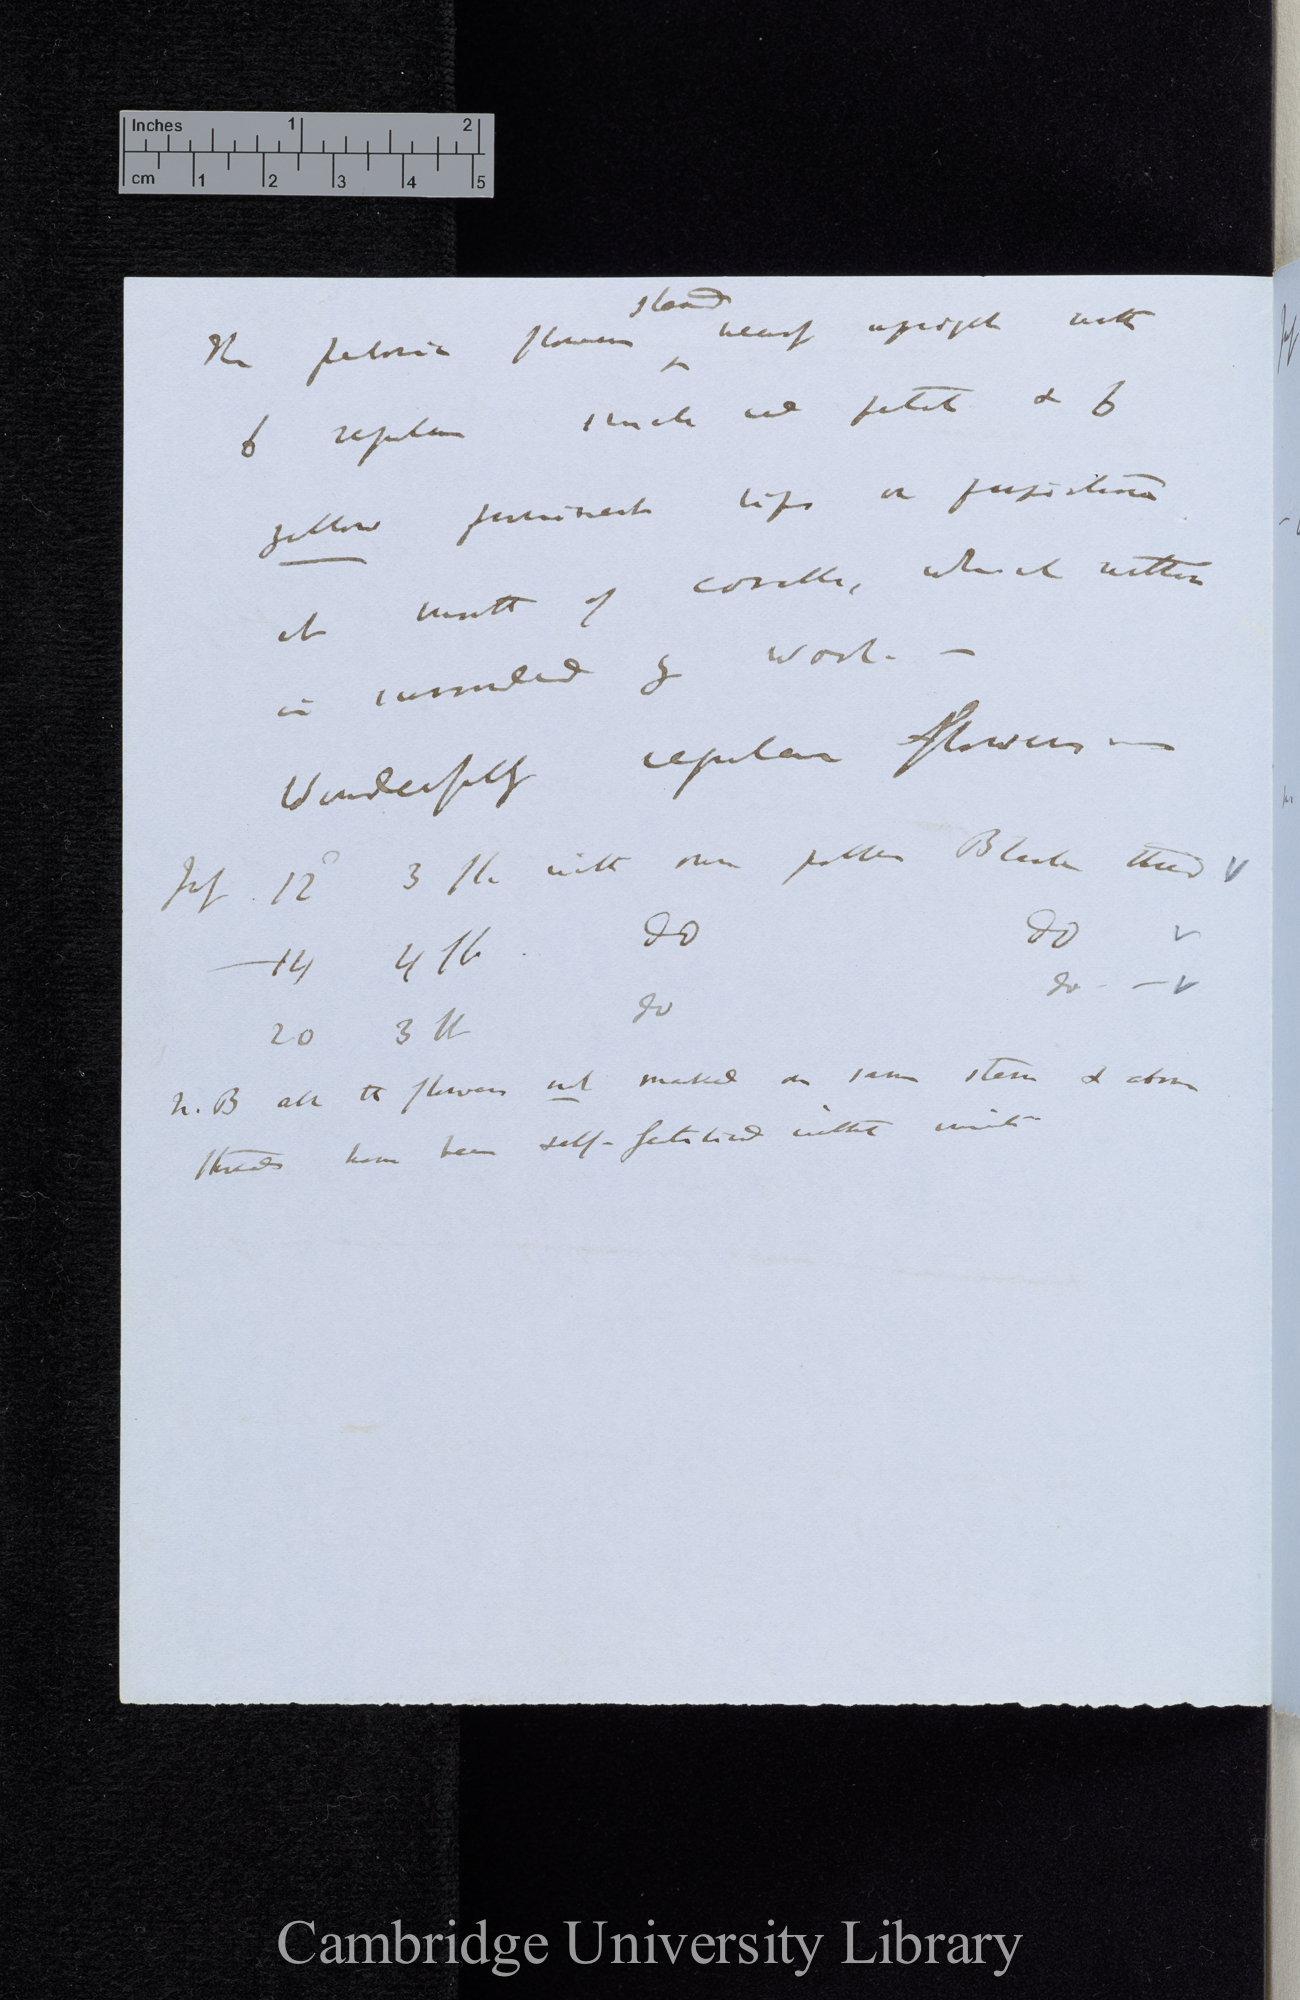 Inches 1 2
cm 1 2 3 4 5
stand
The peloric flowers ^ nearly upright with
6 regular small red petals & 6
yellow prominent lips or projections
at mouth of corolla, which within
is surrounded by wool. —
Wonderfully regular flowers —
July 12° 3 fls with own pollen Black thread v
— 14 4 fls. do do v
20 3 fl do do — v
N.B all the flowers not marked on same stem & above
threads have been self-fertilised within net
Cambridge University Library